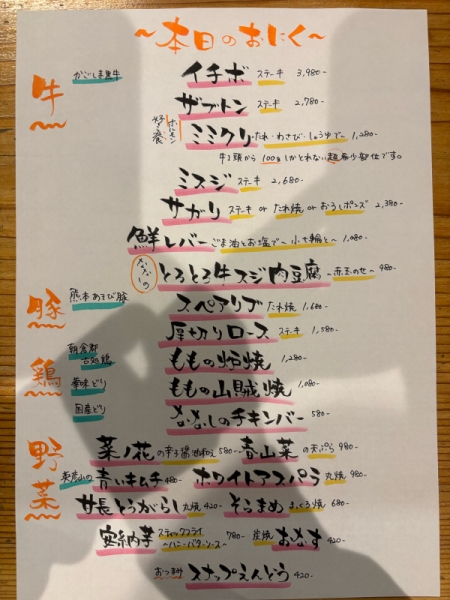 〜本日のおにく〜
牛
かごしま黒牛
イチボ ステーキ 3,980-
ザブトン ステーキ 2,780-
ホルモン
ミミクリ たれ・わさび・しょうゆで〜 1,280-
牛1頭から100gしかとれない超希少部位です。
ミスジ ステーキ 2,680-
サガリ ステーキ or たれ焼 or おろしポンズ 2,380-
鮮レバー ごま油とお塩で〜 1,080-
ななしの とろとろ牛スジ肉豆腐 〜赤玉のせ〜 980-
豚
熊本あそび豚
スペアリブ たれ焼 1,680-
厚切りロース ステーキ 1,580-
鶏
朝倉郡
古処鶏
ももの炉焼 1,280-
華味どり
ももの山賊焼 1,080-
国産どり
ななしのチキンバー 580-
野菜
菜ノ花の辛子醤油和え 580- 春山菜の天ぷら 980-
青いキムチ 480- ホワイトアスパラ 丸焼 980-
甘長とうがらし 丸焼 420- そらまめ まっくろ焼 680-
安納芋 スティックフライ 〜ハニーバターソース〜 780- 炭焼 おなす 420-
おつまみ スナップえんどう 420-